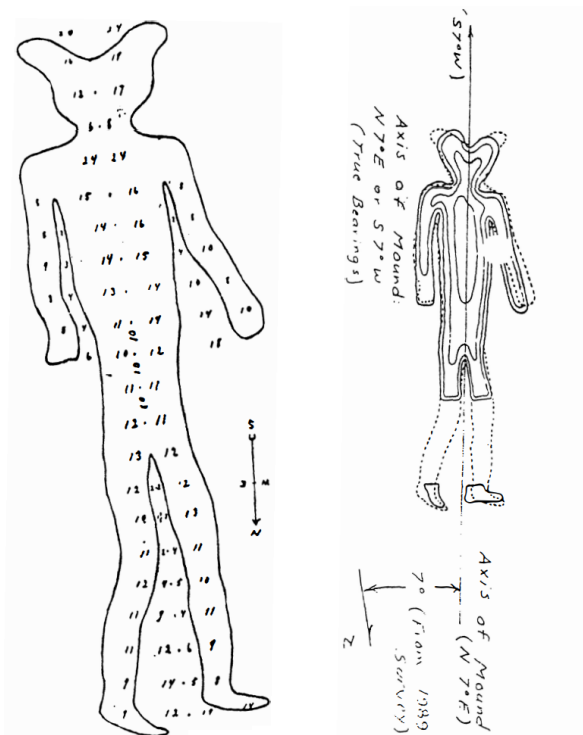 20 24
16 19
12 . 17
6 . 8
24 24
15 . 16
14 . 16
14 . 15
13 . 14
11 . 14
10 . 12
11 . 11
12 . 11
13 12
12 12
13
11 2.4 11
12 4.5 10
11 9 . 4 11
11 12 . 6 9
9 14 . 5 8
9 12 . 19 14
8
8
9
10
8
10
10
14
18
6
S
N
S7°W)
Axis of Mound:
N7°E or S7°W
(True Bearings)
Axis of Mound
(N7°E)
7° (From 1989
Survey)
N